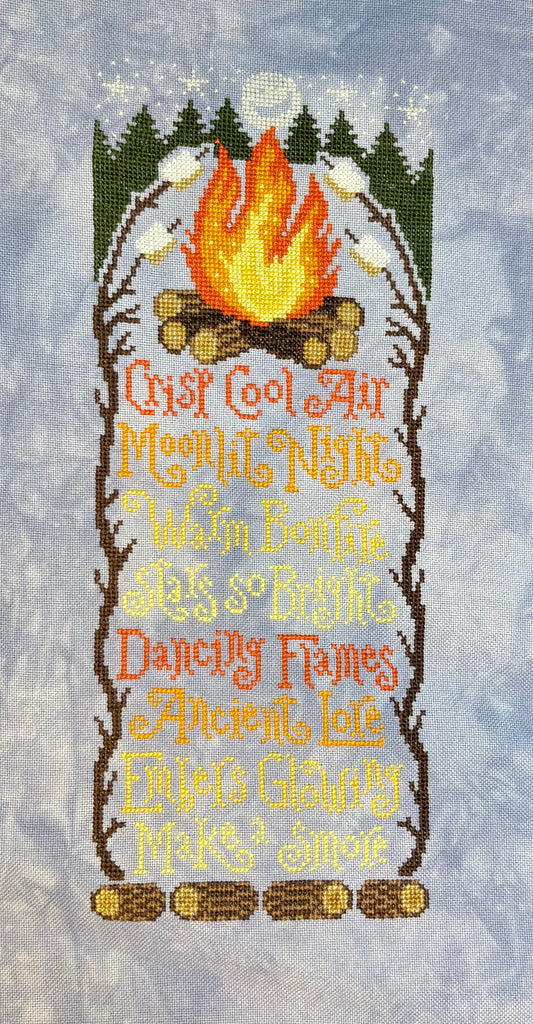 Crisp Cool Air
Moonlit Night
Warm Bonfire
Stars so Bright
Dancing Flames
Ancient Lore
Embers Glowing
Make a Smore